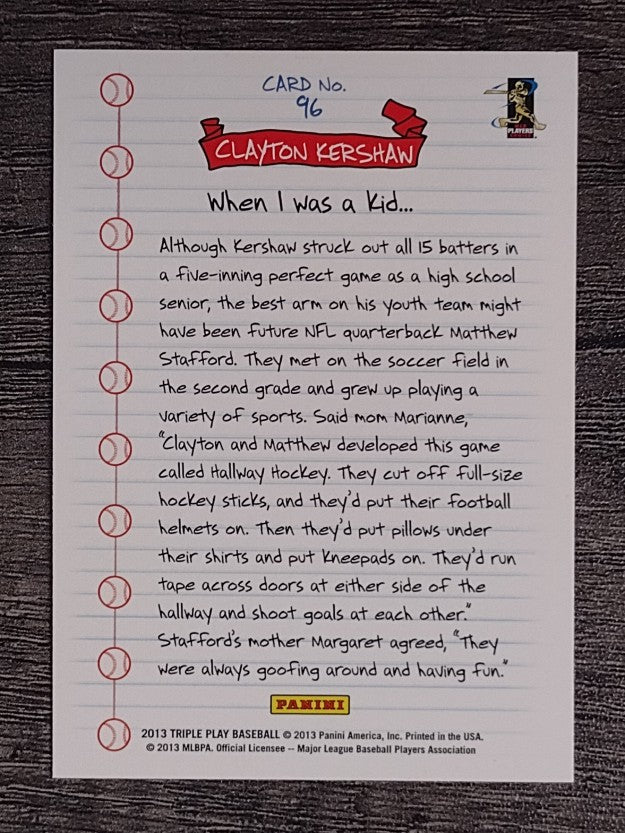 CARD No.
96
PLAYERS
CLAYTON KERSHAW
When I was a Kid...
Although Kershaw struck out all 15 batters in
a five-inning perfect game as a high school
senior, the best arm on his youth team might
have been future NFL quarterback Matthew
Stafford. They met on the soccer field in
the second grade and grew up playing a
variety of sports. Said mom Marianne,
"Clayton and Matthew developed this game
called Hallway Hockey. They cut off full-size
hockey sticks, and they'd put their football
helmets on. Then they'd put pillows under
their shirts and put kneepads on. They'd run
tape across doors at either side of the
hallway and shoot goals at each other."
Stafford's mother Margaret agreed, "They
were always goofing around and having fun."
PANINI
2013 TRIPLE PLAY BASEBALL © 2013 Panini America, Inc. Printed in the USA.
© 2013 MLBPA. Official Licensee -- Major League Baseball Players Association